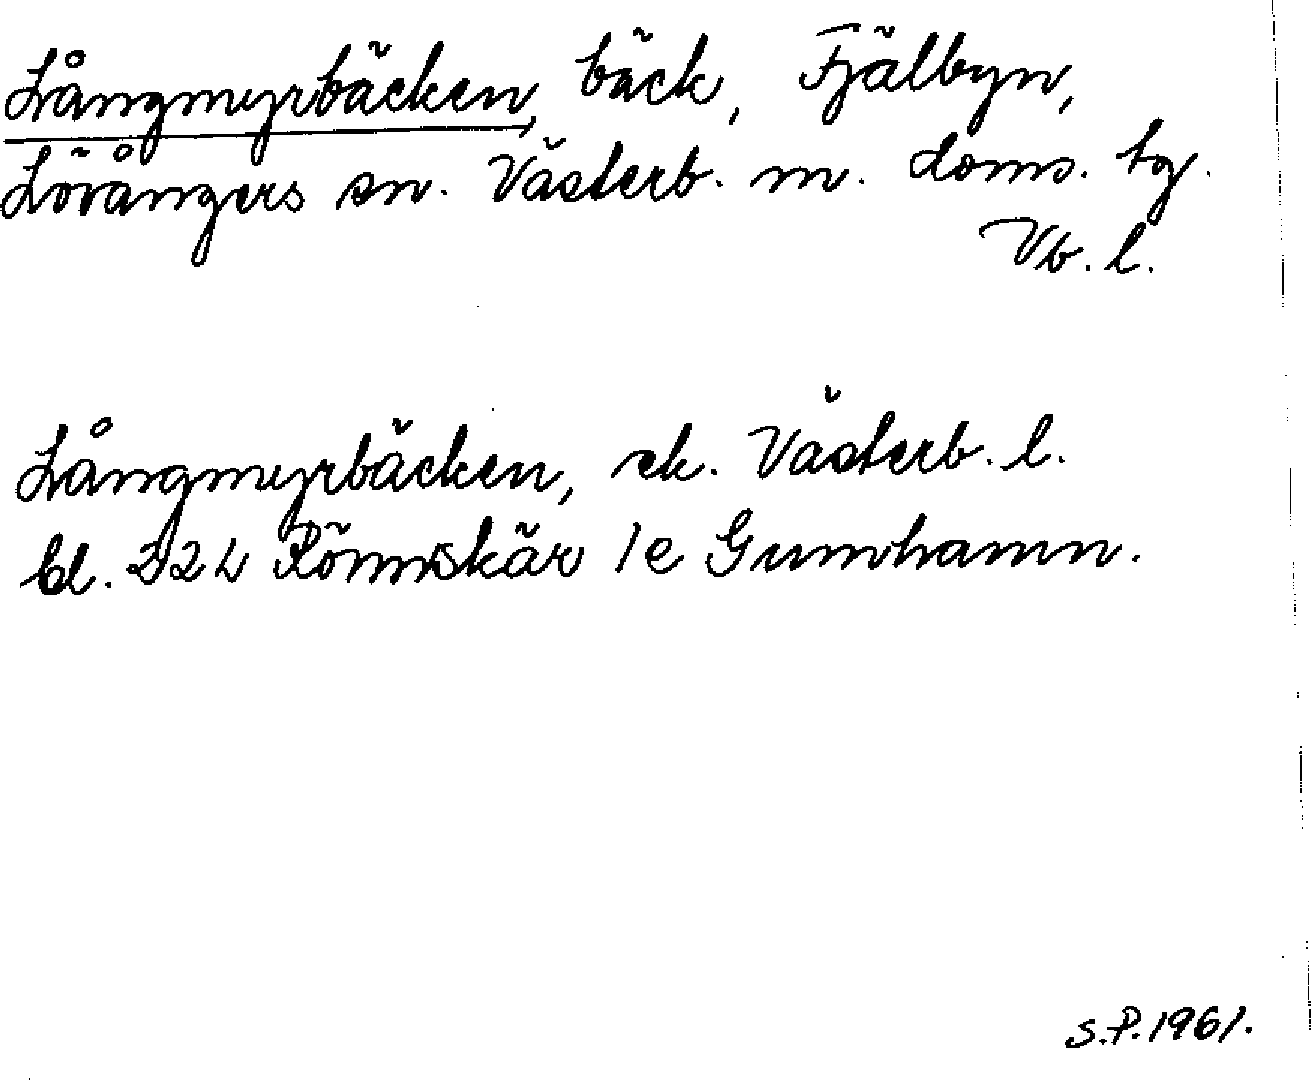 Långmyrbäcken, bäck, Fjälbyn,
Lövångers sn. Västerb. m. doms. tg.
Vb. l.
Långmyrbäcken, ek. Västerb. l.
bl. 22 L Rönnskär 1e Gumhamn.
S.P. 1961.